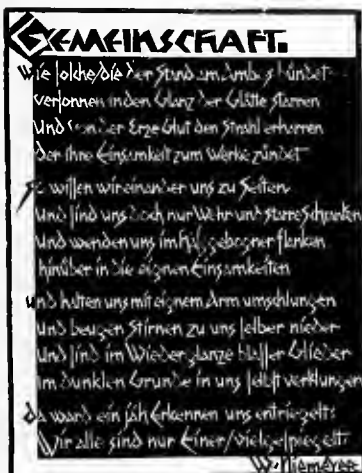 GEMEINSCHAFT.
Wie solche/die der Stand am Ambos bündet
versonnen in den Glanz der Glätte starren
Und von der Erze Glut den Strahl erharren
der ihre Einsamkeit zum Werke zündet
So wissen wir einander uns zu Seiten
Und sind uns doch nur Wehr und starre Schranken
Und wenden uns im Hals gebogner Flanken
hinüber in die eignen Einsamkeiten
und halten uns mit eignem Arm umschlungen
und beugen Stirnen zu uns selber nieder
Und sind im Wiederglanze blasser Glieder
im dunklen Grunde in uns selbst verklungen
Da ward ein jäh Erkennen uns entriegelt:
Wir alle sind nur Einer/vielgespiegelt:
W. Niemeyer